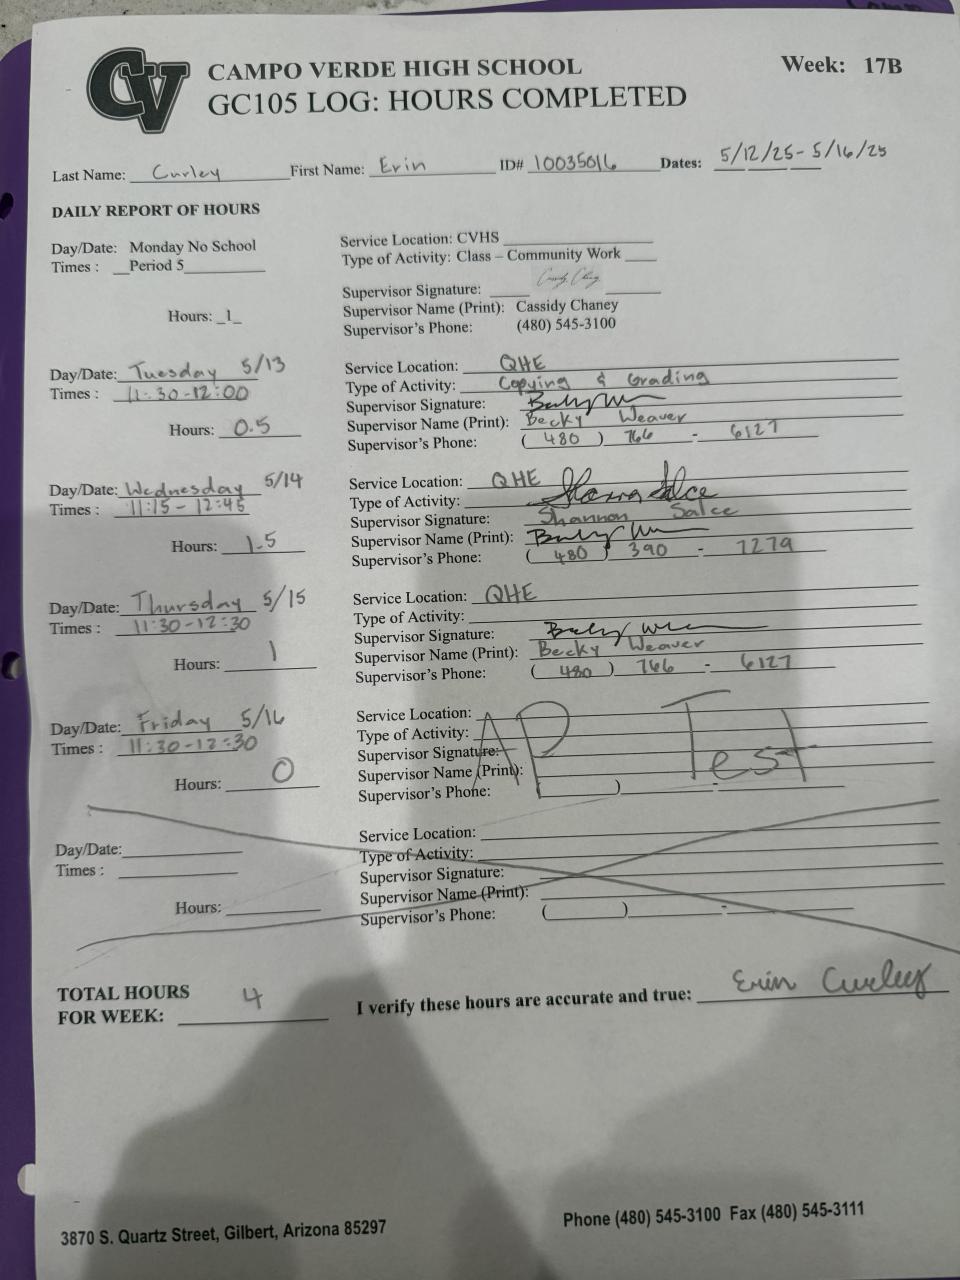 CV
CAMPO VERDE HIGH SCHOOL
Week: 17B
GC105 LOG: HOURS COMPLETED
Last Name: Curley First Name: Erin ID# 10035016 Dates: 5/12/25 - 5/16/25
DAILY REPORT OF HOURS
Day/Date: Monday No School
Times : Period 5
Hours: 1
Service Location: CVHS
Type of Activity: Class – Community Work
Supervisor Signature:
Supervisor Name (Print): Cassidy Chaney
Supervisor's Phone: (480) 545-3100
Day/Date: Tuesday 5/13
Times : 11:30-12:00
Hours: 0.5
Service Location: QHE
Type of Activity: Copying & Grading
Supervisor Signature:
Supervisor Name (Print): Becky Weaver
Supervisor's Phone: (480) 766 - 6127
Day/Date: Wednesday 5/14
Times : 11:15 - 12:45
Hours: 1.5
Service Location: QHE
Type of Activity: Shannon Salce
Supervisor Signature: Shannon Salce
Supervisor Name (Print):
Supervisor's Phone: (480) 390 - 7279
Day/Date: Thursday 5/15
Times : 11:30-12:30
Hours: 1
Service Location: QHE
Type of Activity:
Supervisor Signature:
Supervisor Name (Print): Becky Weaver
Supervisor's Phone: (480) 766 - 6127
Day/Date: Friday 5/16
Times : 11:30-12:30
Hours: 0
Service Location:
Type of Activity:
Supervisor Signature:
Supervisor Name (Print):
Supervisor's Phone: ( ) -
AP Test
Day/Date:
Times :
Hours:
Service Location:
Type of Activity:
Supervisor Signature:
Supervisor Name (Print):
Supervisor's Phone: ( ) -
TOTAL HOURS
FOR WEEK: 4
I verify these hours are accurate and true: Erin Curley
3870 S. Quartz Street, Gilbert, Arizona 85297
Phone (480) 545-3100 Fax (480) 545-3111